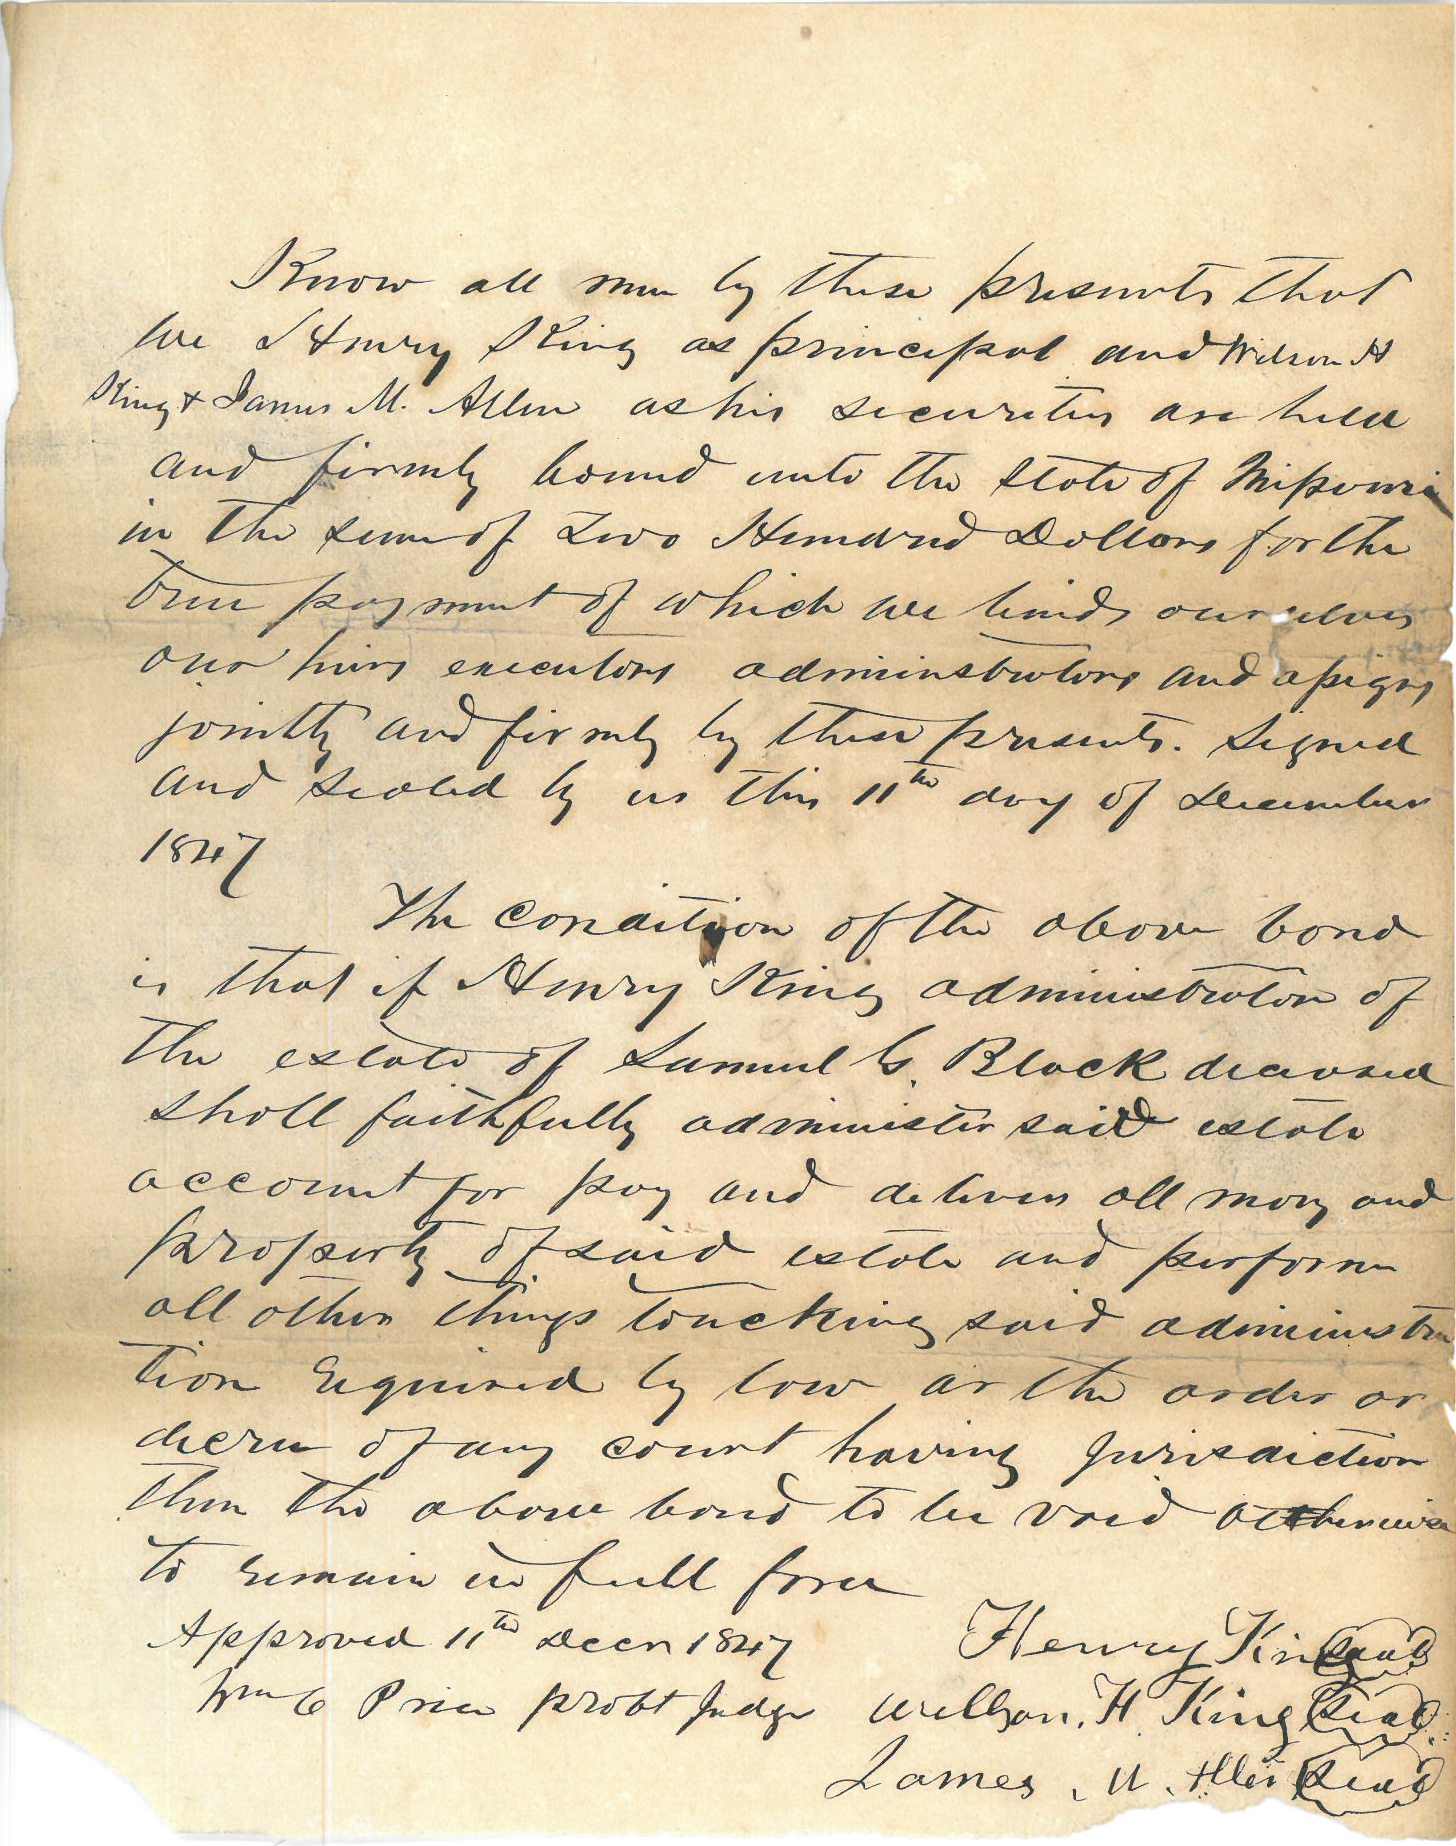 Know all men by these presents that
We Henry King as principal and Wilson H
King & James M. Allen as his securities are held
and firmly bound unto the State of Missouri
in the sum of Two Hundred Dollars for the
true payment of which we binds ourselves
our heirs executors adminstrators and assigns
jointly and firmly by these presents. Signed
and sealed by us this 11th day of December
1847
The condition of the above bond
is that if Henry King administrator of
the estate of Samuel G. Block deceased
shall faithfully administer said estate
account for pay and deliver all mony and
property of said estate and perform
all other things touching said administra
tion required by law or the order or
decree of any court having Jurisdiction
then the above bond to be void otherwise
to remain in full force
Approved 11th Decr 1847 Henry King Seal
Wm C Price probt Judge Willson. H King Seal
James . M . Allen Seal